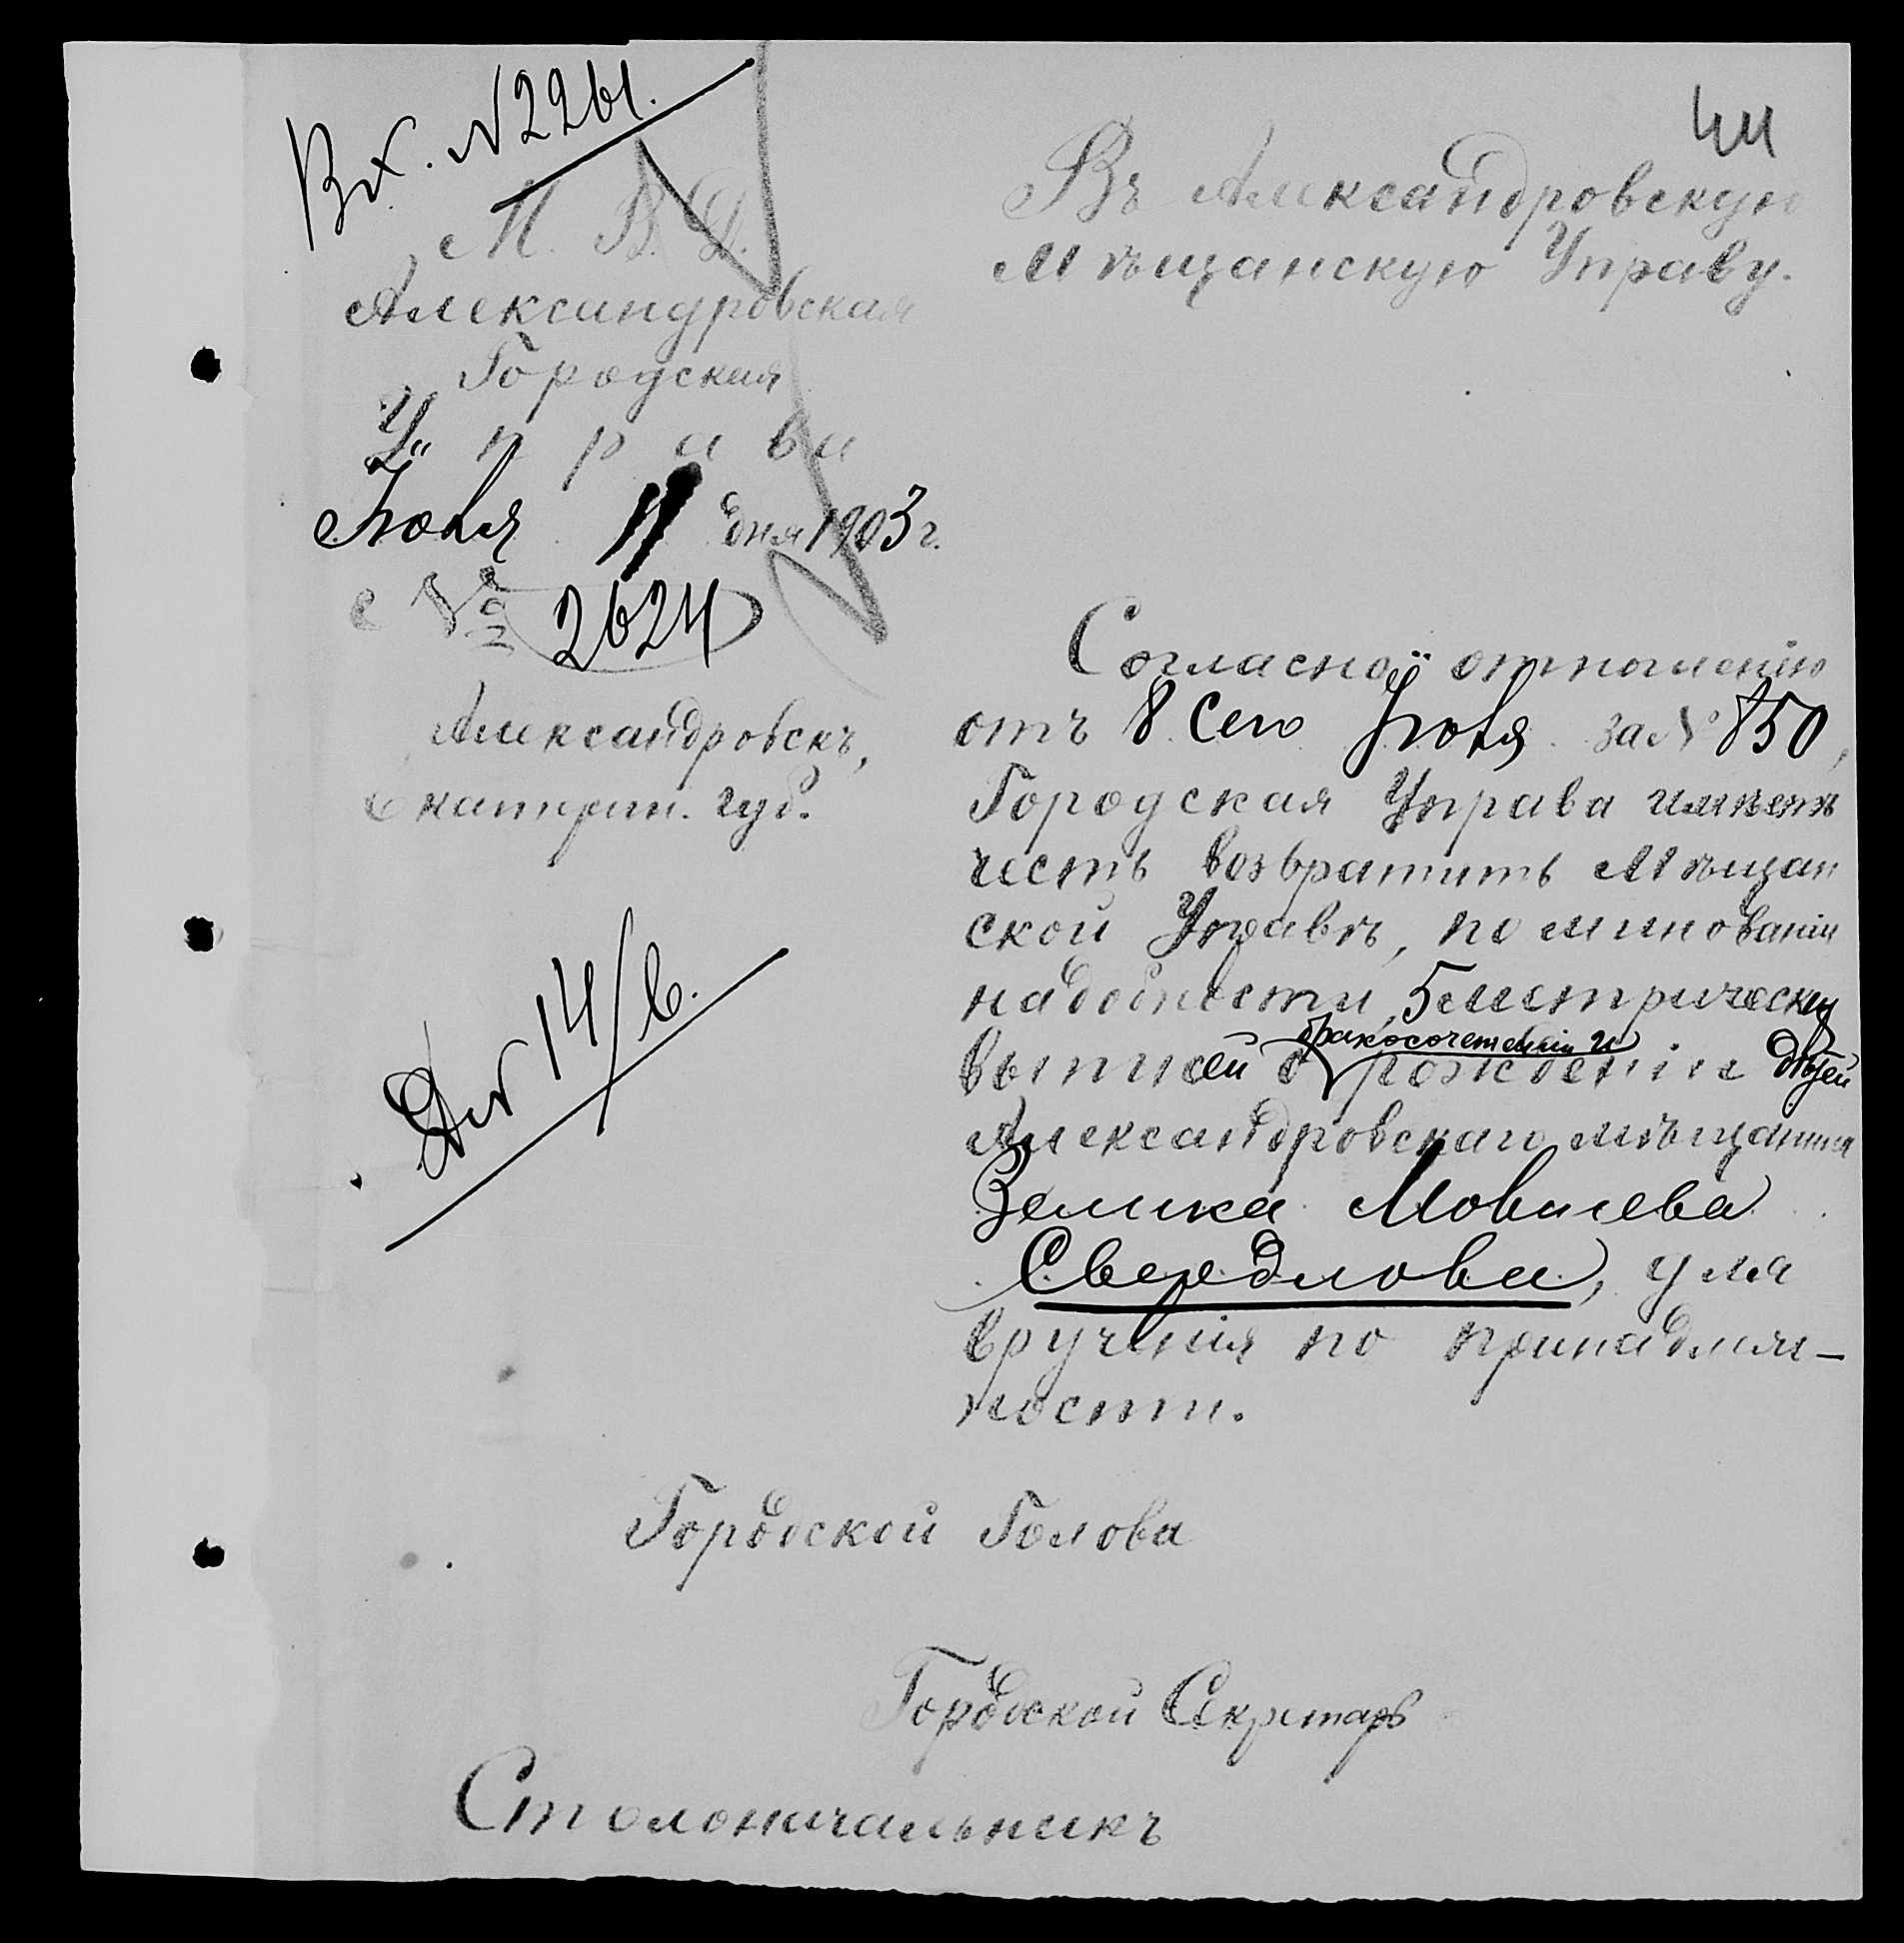 Вх. № 2261.
44
М. В. Д.
Александровская
Городская
Управа
Іюня 11 дня 1903 г.
№ 2624
Александровскъ,
Екатерин. губ.
Въ Александровскую
Мѣщанскую Управу.
Согласно отношенію
отъ 8 сего Іюня за № 850,
Городская Управа имѣетъ
честь возвратить Мѣщан
ской Управѣ, по минованіи
надобности, 5 метрическ
выписей о бракосочетаніи и рожденіи дѣтей
Александровскаго мѣщанина
Зелика Мовшева
Свердлова, для
врученія по принадлеж-
ности.
14/6.
Городской Голова
Городской Секретарь
Столоначальникъ